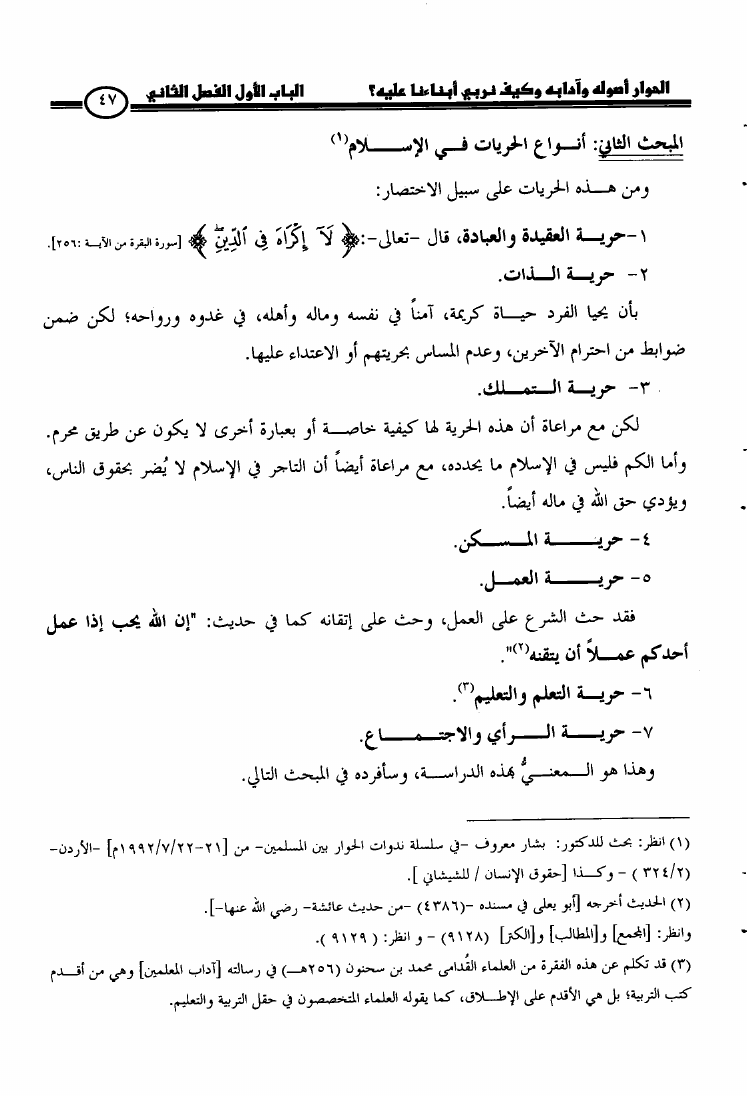 الحوار أصوله وآدابه وكيف نربي أبناءنا عليه؟ الباب الأول الفصل الثاني ٤٧
المبحث الثاني: أنـواع الحريات فـي الإسـلام(١)
ومن هـذه الحريات على سبيل الاختصار:
١-حريـة العقيدة والعبادة، قال -تعالى-: ﴿ لَآ إِكْرَاهَ فِى ٱلدِّينِۖ ﴾ [سورة البقرة من الآيـة :٢٥٦].
٢- حريـة الـذات.
بأن يحيا الفرد حيـاة كريمة، آمناً في نفسه وماله وأهله، في غدوه ورواحه؛ لكن ضمن
ضوابط من احترام الآخرين، وعدم المساس بحريتهم أو الاعتداء عليها.
٣- حريـة الـتمـلك.
لكن مع مراعاة أن هذه الحرية لها كيفية خاصـة أو بعبارة أخرى لا يكون عن طريق محرم.
وأما الكم فليس في الإسلام ما يحدده، مع مراعاة أيضاً أن التاجر في الإسلام لا يُضر بحقوق الناس،
ويؤدي حق الله في ماله أيضاً.
٤- حريـة المـسـكن.
٥- حريـة العمـل.
فقد حث الشرع على العمل، وحث على إتقانه كما في حديث: "إن الله يحب إذا عمل
أحدكم عمـلاً أن يتقنه(٢)".
٦- حريـة التعلم والتعليم(٣).
٧- حريـة الـرأي والاجتمـاع.
وهذا هو الـمعنـيُّ بهذه الدراسـة، وسأفرده في المبحث التالي.
(١) انظر: بحث للدكتور: بشار معروف -في سلسلة ندوات الحوار بين المسلمين- من [٢١-١٩٩٢/٧/٢٢م] -الأردن-
(٣٢٤/٢ ) - وكـذا [حقوق الإنسان / للشيشاني ].
(٢) الحديث أخرجه [أبو يعلى في مسنده -(٤٣٨٦) -من حديث عائشة- رضي الله عنها-].
وانظر: [المجمع] و[المطالب] و[الكنز] (٩١٢٨) - و انظر: ( ٩١٢٩ ).
(٣) قد تكلم عن هذه الفقرة من العلماء القُدامى محمد بن سحنون (٢٥٦هـ) في رسالته [آداب المعلمين] وهي من أقـدم
كتب التربية؛ بل هي الأقدم على الإطـلاق، كما يقوله العلماء المتخصصون في حقل التربية والتعليم.